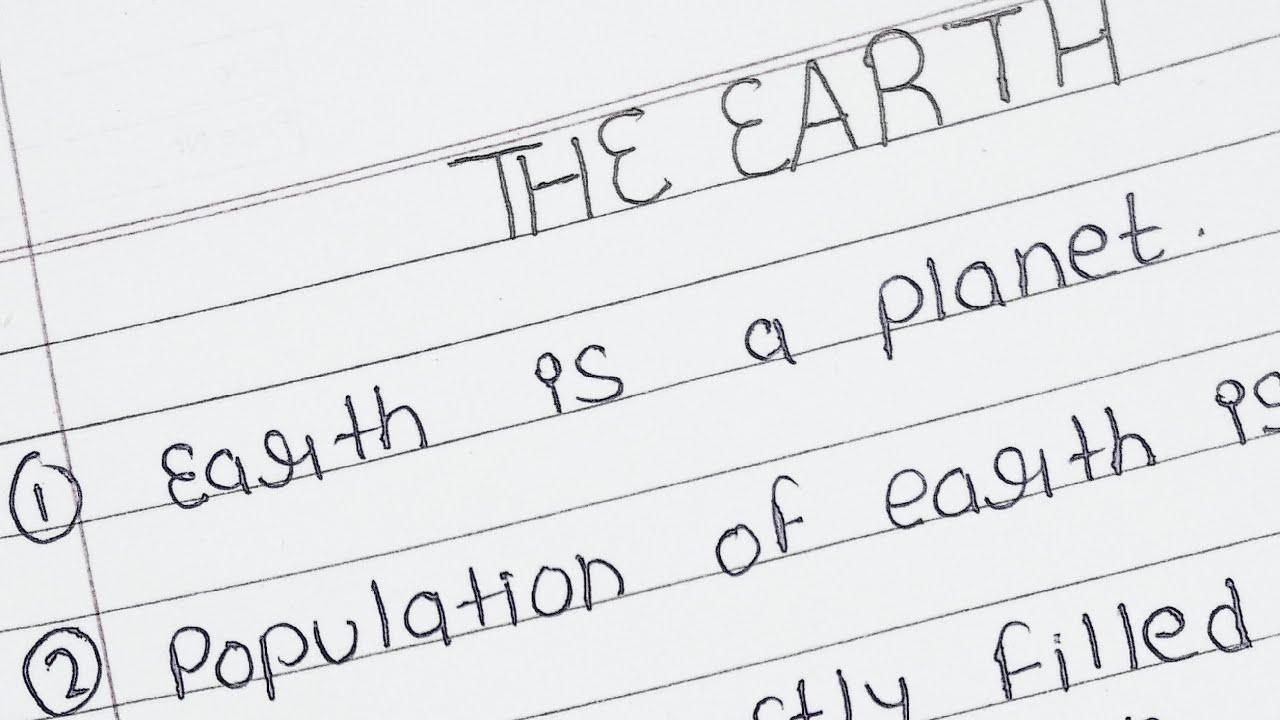 THE EARTH
① Earth is a planet.
② Population of earth is
filled